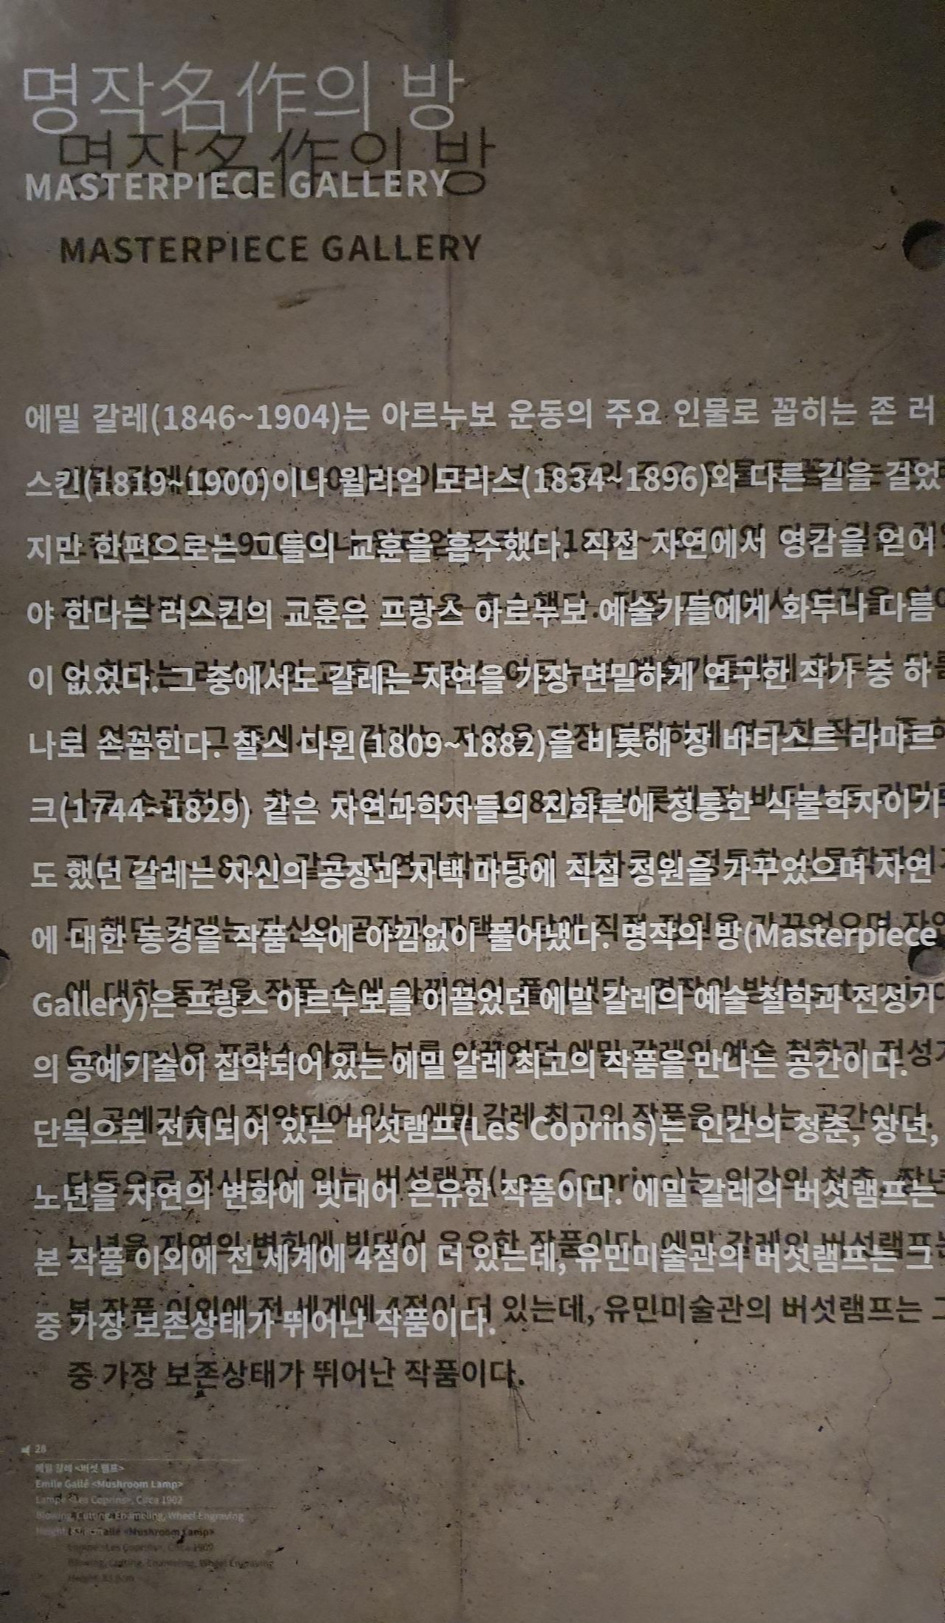 명작名作의 방
MASTERPIECE GALLERY
에밀 갈레(1846~1904)는 아르누보 운동의 주요 인물로 꼽히는 존 러
스킨(1819~1900)이나 윌리엄 모리스(1834~1896)와 다른 길을 걸었
지만 한편으로는 그들의 교훈을 흡수했다. 직접 자연에서 영감을 얻어
야 한다는 러스킨의 교훈은 프랑스 아르누보 예술가들에게 화두나 다름
이 없었다. 그 중에서도 갈레는 자연을 가장 면밀하게 연구한 작가 중 하
나로 손꼽힌다. 찰스 다윈(1809~1882)을 비롯해 장 바티스트 라마르
크(1744~1829) 같은 자연과학자들의 진화론에 정통한 식물학자이기
도 했던 갈레는 자신의 공장과 자택 마당에 직접 정원을 가꾸었으며 자연
에 대한 동경을 작품 속에 아낌없이 풀어냈다. 명작의 방(Masterpiece
Gallery)은 프랑스 아르누보를 이끌었던 에밀 갈레의 예술 철학과 전성기
의 공예기술이 집약되어 있는 에밀 갈레 최고의 작품을 만나는 공간이다.
단독으로 전시되어 있는 버섯램프(Les Coprins)는 인간의 청춘, 장년,
노년을 자연의 변화에 빗대어 은유한 작품이다. 에밀 갈레의 버섯램프는
본 작품 이외에 전 세계에 4점이 더 있는데, 유민미술관의 버섯램프는 그
중 가장 보존상태가 뛰어난 작품이다.
28
에밀 갈레 <버섯 램프>
Emile Gallé <Mushroom Lamp>
Lampe <Les Coprins>, Circa 1902
Blowing, Cutting, Enameling, Wheel Engraving
Height